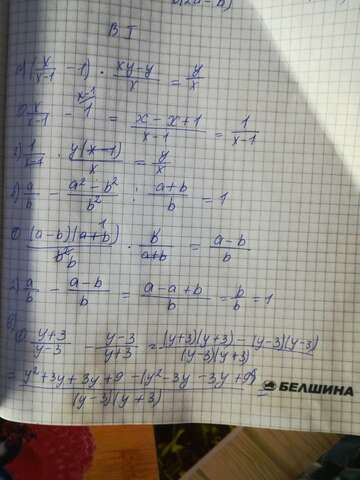 В I
а) (x/(x-1) - 1) · (xy-y)/x = y/x
1) x/(x-1) - 1 = (x-x+1)/(x-1) = 1/(x-1)
2) 1/(x-1) · y(x-1)/x = y/x
б) a/b - (a²-b²)/b² : (a+b)/b = 1
1) (a-b)(a+b)/b² · b/(a+b) = (a-b)/b
2) a/b - (a-b)/b = (a-a+b)/b = b/b = 1
в)
1) (y+3)/(y-3) - (y-3)/(y+3) = ((y+3)(y+3) - (y-3)(y-3))/((y-3)(y+3))
= (y²+3y+3y+9 - (y²-3y-3y+9))/((y-3)(y+3))
БЕЛШИНА